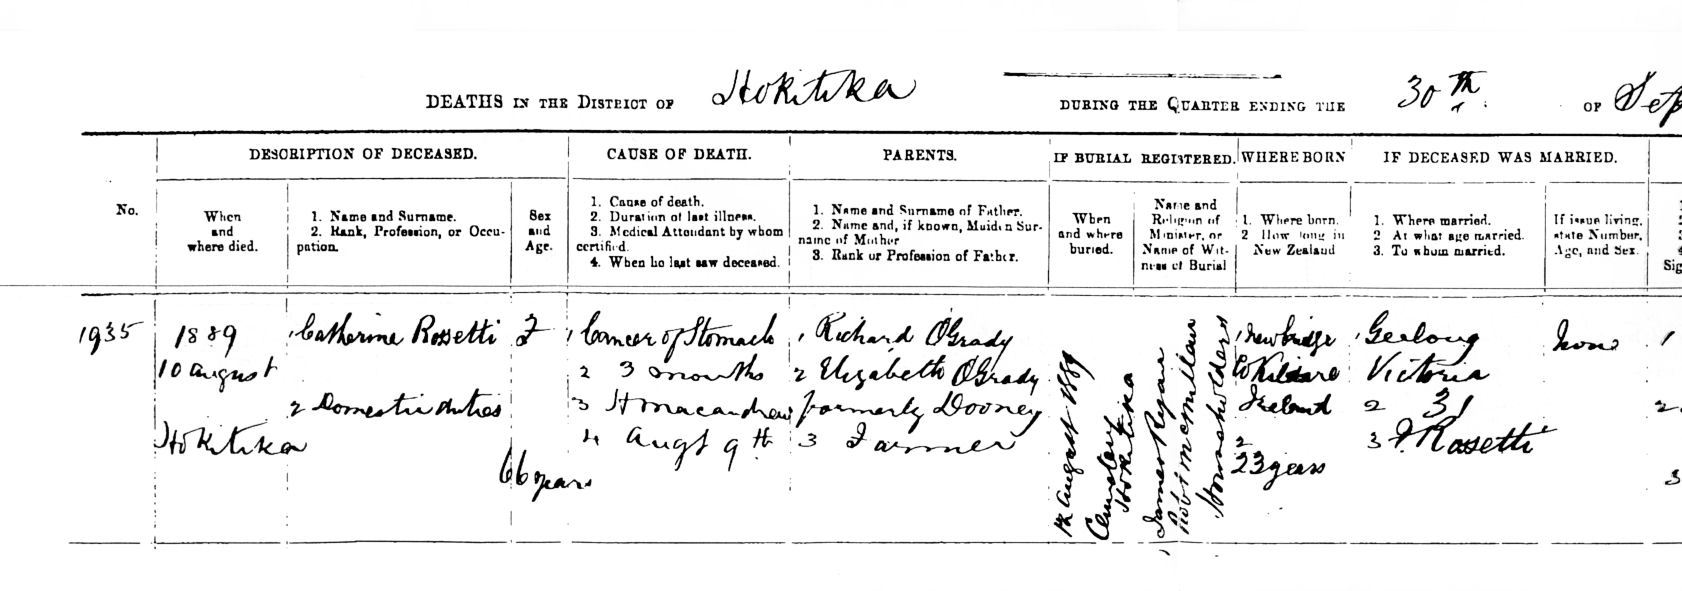 DEATHS IN THE DISTRICT OF Hokitika DURING THE QUARTER ENDING THE 30th OF Sep
No.
DESCRIPTION OF DECEASED.
When
and
where died.
1. Name and Surname.
2. Rank, Profession, or Occu-
pation.
Sex
and
Age.
CAUSE OF DEATH.
1. Cause of death.
2. Duration of last illness.
3. Medical Attendant by whom
certified.
4. When he last saw deceased.
PARENTS.
1. Name and Surname of Father.
2. Name and, if known, Maiden Sur-
name of Mother
3. Rank or Profession of Father.
IF BURIAL REGISTERED.
When
and where
buried.
Name and
Religion of
Minister, or
Name of Wit-
ness of Burial
WHERE BORN
1. Where born.
2 How long in
New Zealand
IF DECEASED WAS MARRIED.
1. Where married.
2 At what age married.
3. To whom married.
If issue living,
state Number,
Age, and Sex.
Sig
1935
1889
10 August
Hokitika
1 Catherine Rossetti
2 Domestic duties
F
66 years
1 Cancer of Stomach
2 3 months
3 H Macandrew
4 Augt 9th
1 Richard O'Grady
2 Elizabeth O'Grady
formerly Dooney
3 Farmer
12 August 1889
Cemetery
Hokitika
James Ryan
Robt McMillan
Householders
1 Newbridge
Co Kildare
Ireland
2
23 years
1 Geelong
Victoria
2 31
3 F. Rossetti
None
1
2
3